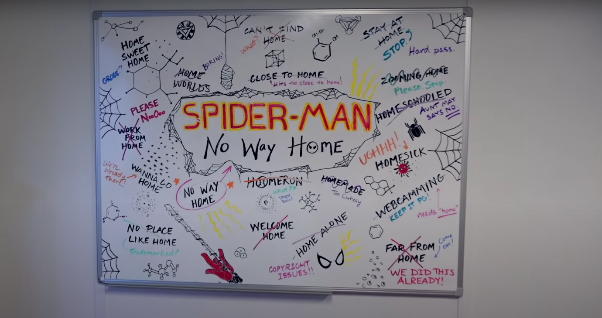 HOME
SWEET
HOME
CAN'T FIND
HOME
STAY AT
HOME
STOP!
Hard pass.
HOME
WORLDS
BORING!
CLOSE TO HOME
ZOOMING HOME
Please Stop.
HOMESCHOOLED
AUNT MAY
SAYS NO
PLEASE
NoOoo
WORK
FROM
HOME
SPIDER-MAN
No Way Home
UGHHH!
HOMESICK
WANNA GO
HOME
NO WAY
HOME
HOMERUN
HOMEMADE
WEBCAMMING
needs "home"
NO PLACE
LIKE HOME
Trademarked?
WELCOME
HOME
HOME ALONE
COPYRIGHT
ISSUES!!
FAR FROM
HOME
WE DID THIS
ALREADY!